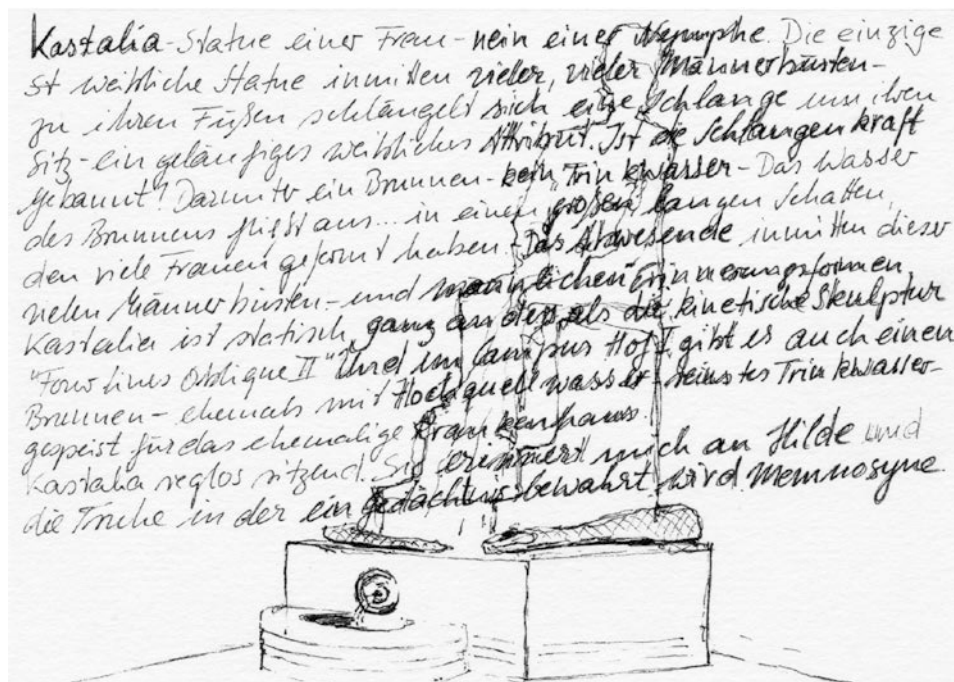 Kastalia - Statue einer Frau - nein einer Nymphe. Die einzige
st weibliche Statue inmitten vieler, vieler Männerbüsten -
zu ihren Füßen schlängelt sich eine Schlange um ihren
Sitz - ein geläufiges weibliches Attribut. Ist die Schlangenkraft
gebannt? Darunter ein Brunnen - kein Trinkwasser - Das Wasser
des Brunnens fließt aus ... in einen großen, langen Schatten,
den viele Frauen geformt haben. - Das Abwesende inmitten dieser
vielen Männerbüsten - und männlichen Erinnerungsformen,
Kastalia ist statisch, ganz anders als die kinetische Skulptur
"Four Lines Oblique II" Und im Campus Hof I gibt es auch einen
Brunnen - ehemals mit Hochquellwasser - reinstes Trinkwasser -
gespeist für das ehemalige Krankenhaus.
Kastalia reglos sitzend. Sie erinnert mich an Hilde und
die Truhe in der ein Gedächtnis bewahrt wird. Memnosyne